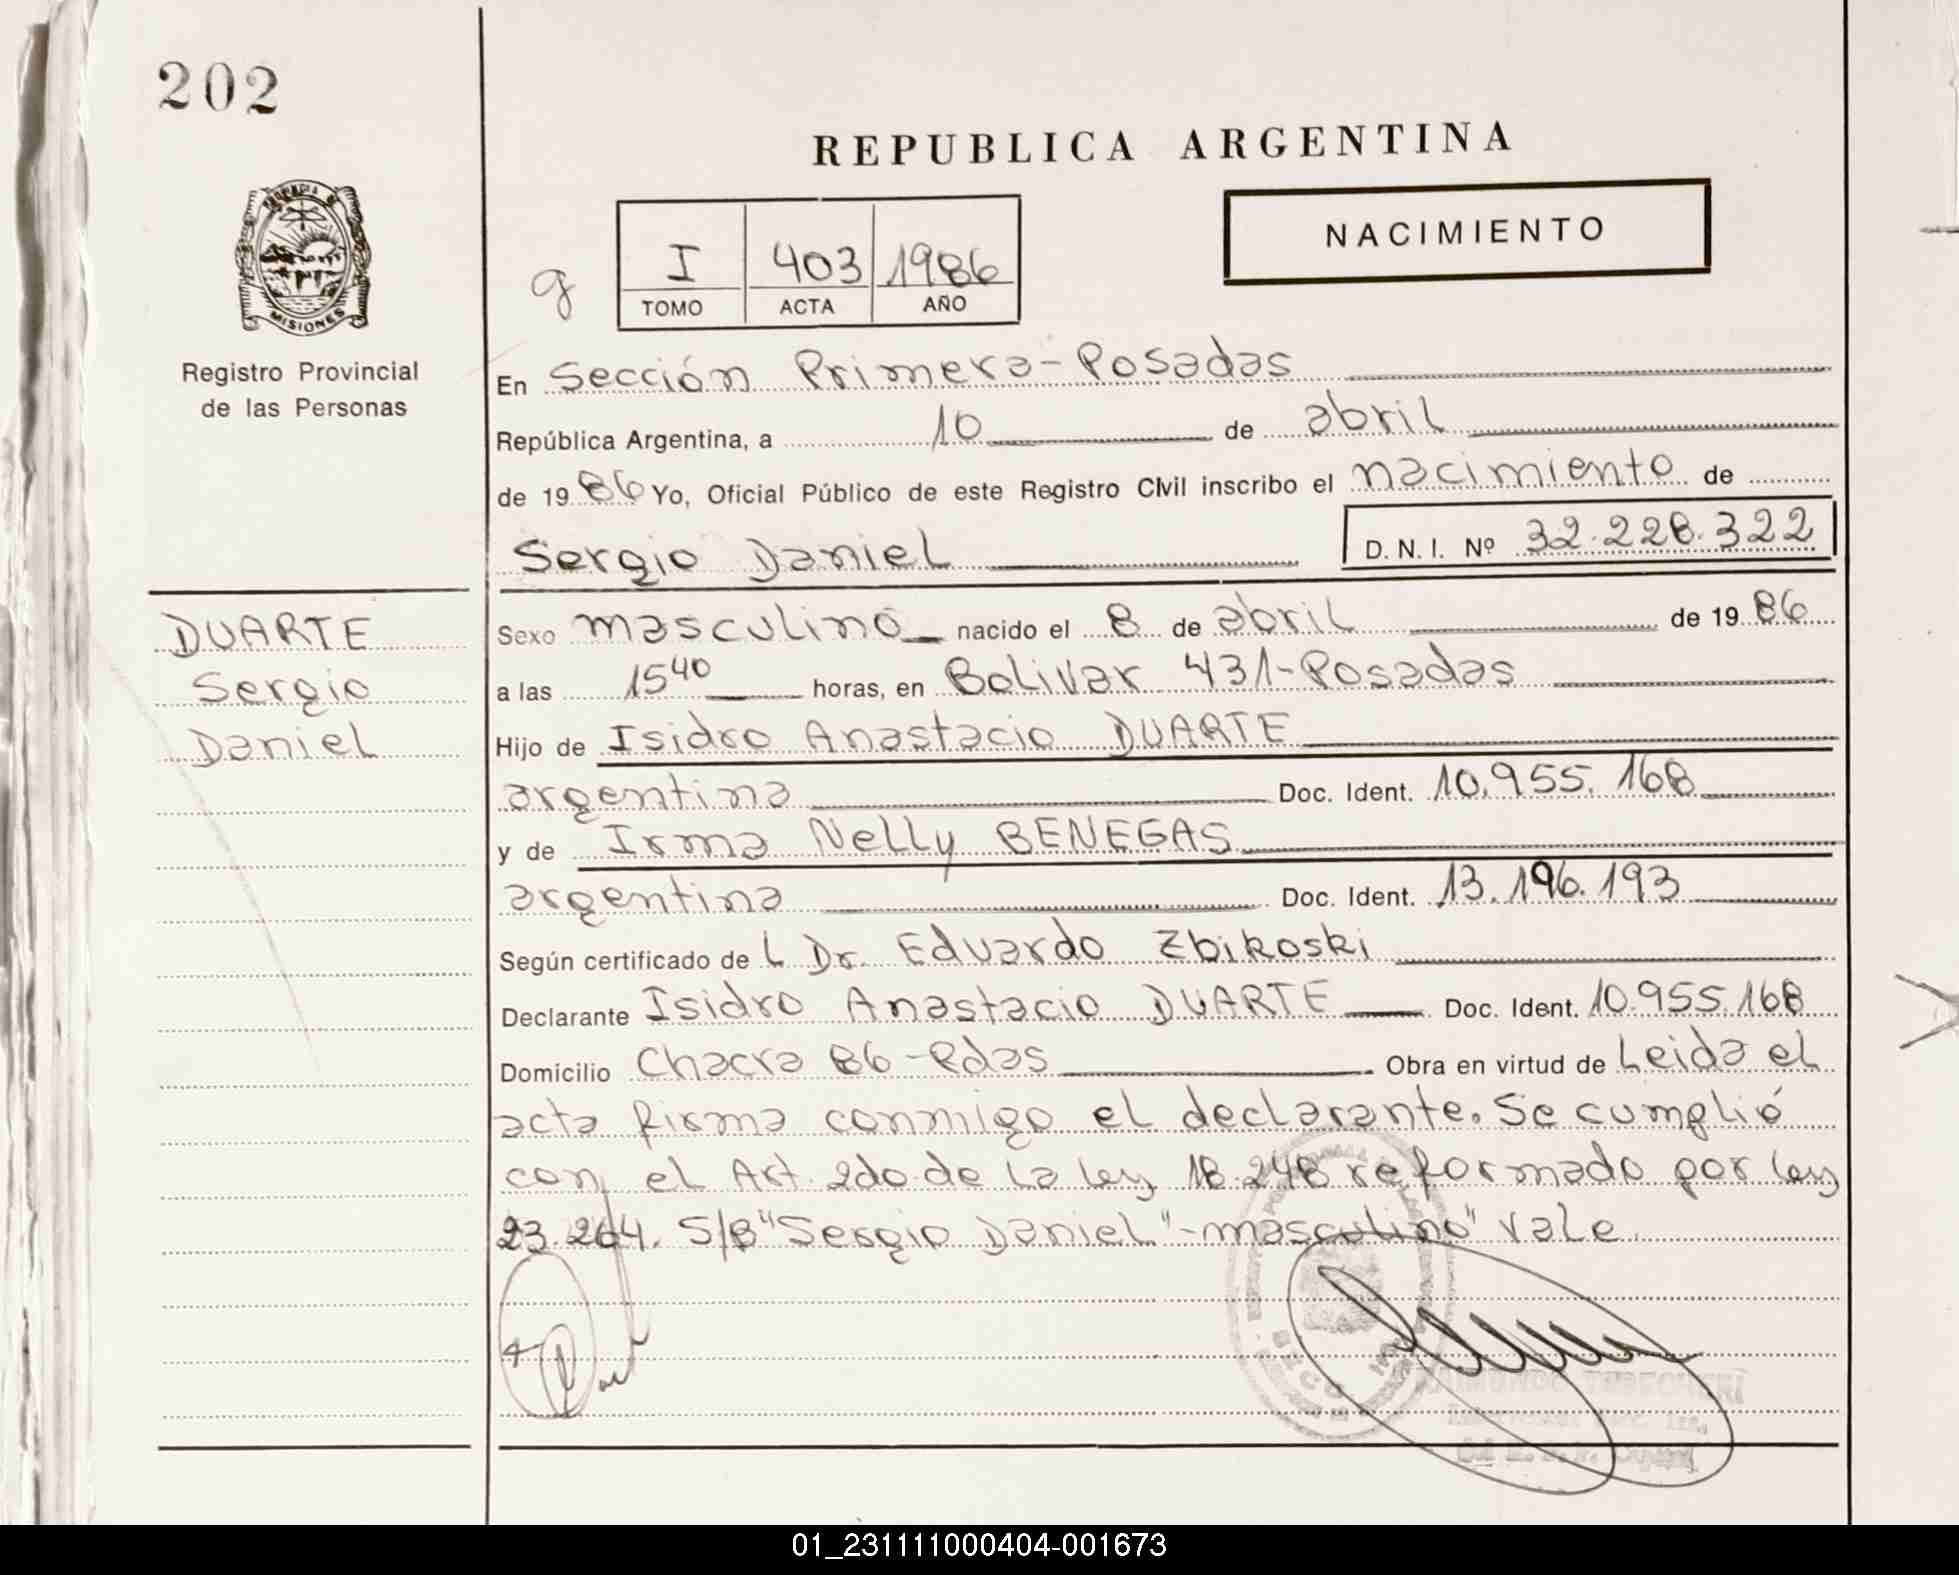 202
REPUBLICA ARGENTINA
NACIMIENTO
g
I 403 1986
TOMO ACTA AÑO
MISIONES
Registro Provincial
de las Personas
En Sección Primera-Posadas
República Argentina, a 10 de abril
de 1986 Yo, Oficial Público de este Registro Civil inscribo el nacimiento de
Sergio Daniel D.N.I. Nº 32.228.322
DUARTE
Sergio
Daniel
Sexo masculino nacido el 8 de abril de 1986
a las 15 40 horas, en Bolivar 431-Posadas
Hijo de Isidro Anastacio DUARTE
argentina Doc. Ident. 10.955.168
y de Irma Nelly BENEGAS
argentina Doc. Ident. 13.196.193
Según certificado de L Dr. Eduardo Zbikoski
Declarante Isidro Anastacio DUARTE Doc. Ident. 10.955.168
Domicilio Chacra 86-Pdas Obra en virtud de Leida el
acta firma conmigo el declarante. Se cumplió
con el Art. 2do de la ley 18.248 reformado por ley
23.264. S/B "Sergio Daniel"-masculino" vale
01_231111000404-001673